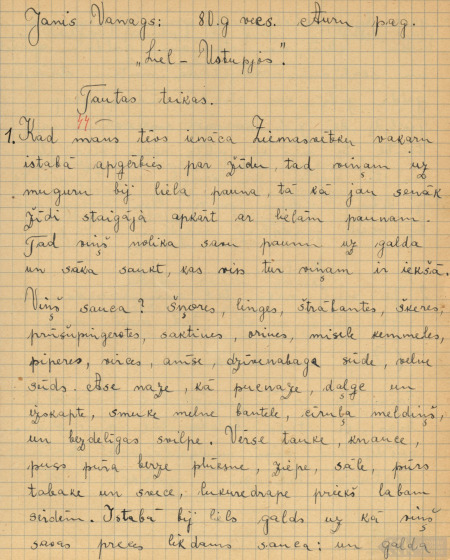 Janis Vanags: 80.g vecs. Auru pag.
"Liel-Ustupjos".
Tautas teikas.
44
1. Kad mans tēvs ienāca Ziemasvētku vakaru
istabā apģērbies par žīdu, tad viņam uz
muguru bij liela pauna, tā kā jau senāk
žīdi staigājā apkārt ar lielām paunam.
Tad viņš nolika savu paunu uz galda
un sāka saukt, kas viss tur viņam ir iekšā.
Viņš sauca? šņores, linges, štrābantes, šķeres,
saktines, orines, misele kemmeles,
piperes, virces, anīse, dzīvenabaga sūde, velne
sūds. Ase naze, kā pucnaze, dalge un
izskapte, smuke melne bantele, cīruļa meldiņš,
un bezdelīgas svilpe. Vērse tauke, knauce,
pugs pūra berze plūksne, ziepe, sāle, pūrs
tabake un svece, priekš labam
sirdēm. Istabā bij liels galds uz kā viņš
savas preces likdams sauca: un galda